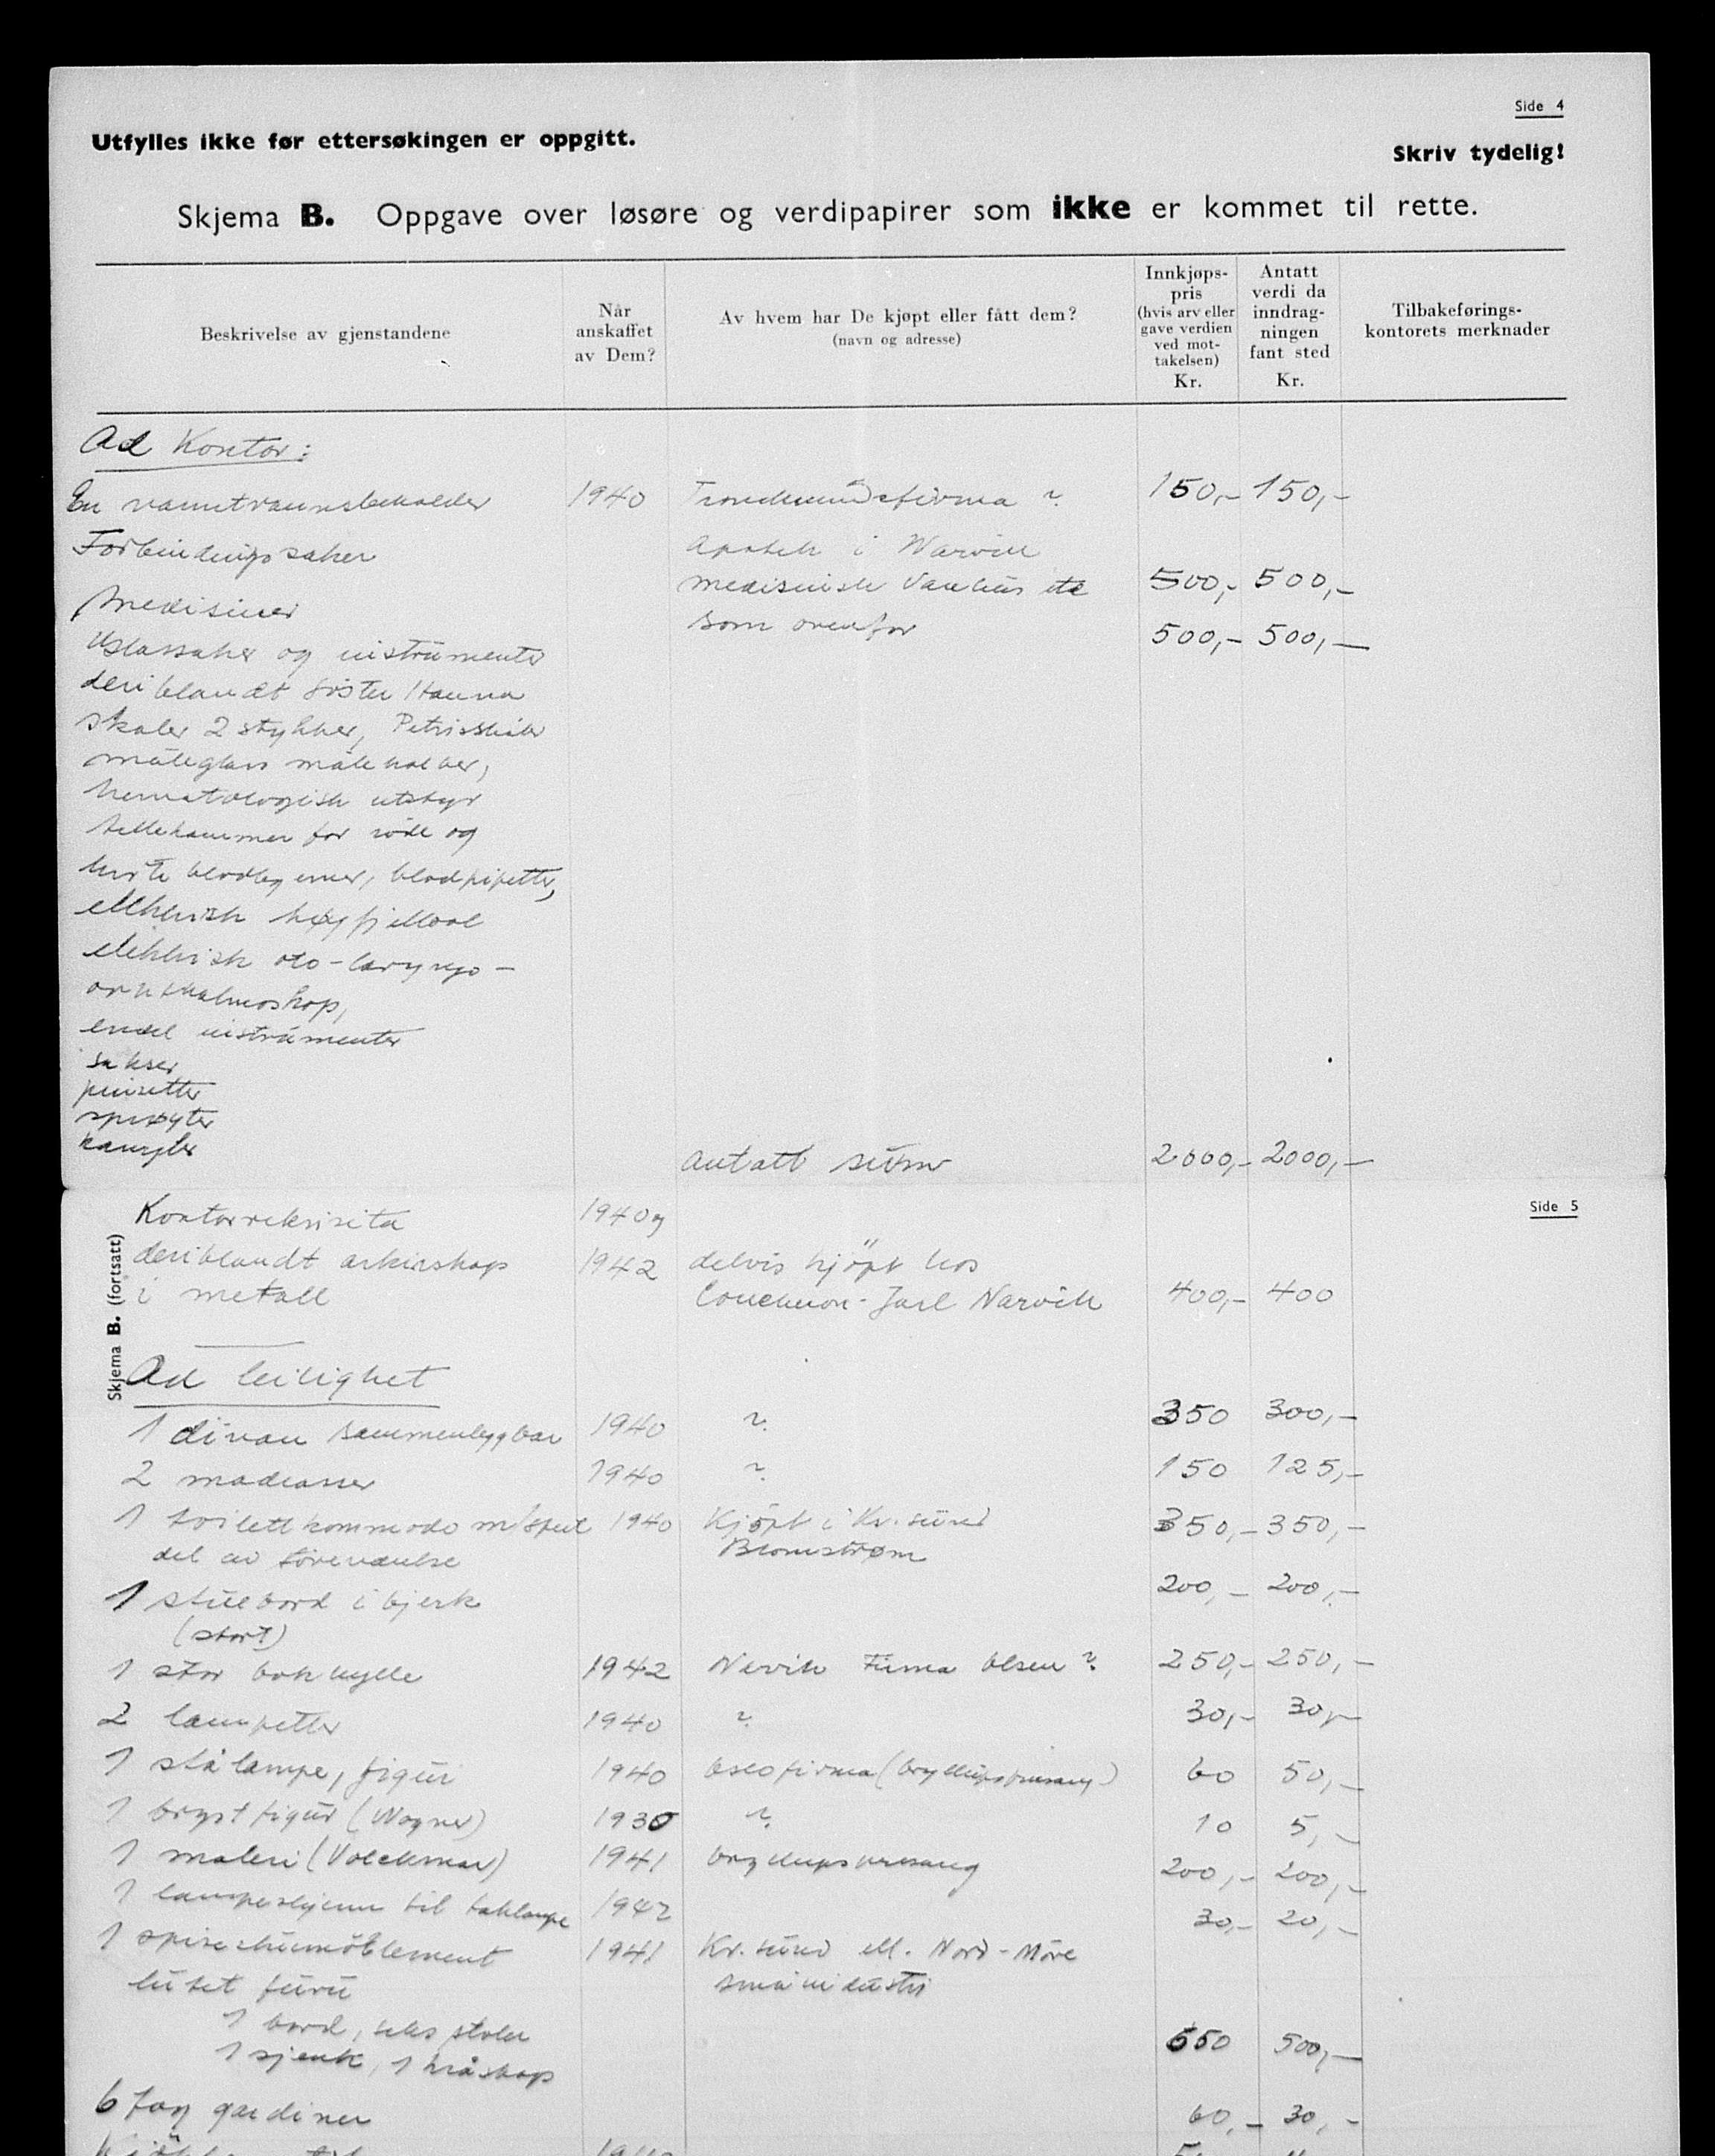 Side 4
Utfylles ikke før ettersøkingen er oppgitt.
Skriv tydelig!
Skjema B. Oppgave over løsøre og verdipapirer som ikke er kommet til rette.
Beskrivelse av gjenstandene
Når
anskaffet
av Dem?
Av hvem har De kjøpt eller fått dem?
(navn og adresse)
Innkjøps-
pris
(hvis arv eller
gave verdien
ved mot-
takelsen)
Kr.
Antatt
verdi da
inndrag-
ningen
fant sted
Kr.
Tilbakeførings-
kontorets merknader
Ad Kontor:
En 1940 Trondheimsfirma ? 150,- 150,-
Forbindingssaker Apotek i Narvik
medisinsk Varehus etc 500,- 500,-
Medisiner
som ovenfor 500,- 500,-
Glassaker og instrumenter
deriblandt søster Hanna
skaler 2 stykker, Petriskåler
måleglass målekolber,
hematologisk utstyr
tellekammer for røde og
hvite blodlegemer, blodpipetter,
elektrisk høyfjellsol
elektrisk oto-laryngo-
ophthalmoskop,
endel instrumenter
sakser
pinsetter
sprøyter
kanyler
antatt sum 2000,- 2000,-
Side 5
Skjema B. (fortsatt)
Kontorrekvisita 1940 og
deriblandt arkivskap 1942 delvis kjöpt hos
i metall Jarl Narvik 400,- 400
Ad leilighet
1 divan sammenleggbar 1940 ? 350 300,-
2 madrasser 1940 ? 150 125,-
1 toilettkommode m/speil 1940 Kjöpt i Kr.sund 350,- 350,-
del av soveværelse Blomstrøm
1 stuebord i bjerk 200,- 200,-
(stort)
1 stor bokhylle 1942 Narvik Firma Olsen ? 250,- 250,-
2 lampetter 1940 ? 30,- 30,-
1 stålampe, figur 1940 Oslofirma (bryllupspresang) 60 50,-
1 brystfigur (Wagner) 1930 ? 10 5,-
1 maleri (Volckmar) 1941 bryllupspresang 200,- 200,-
1 lampeskjerm til taklampe 1942 30,- 20,-
1 spisestuemöblement 1941 Kr.sund ell. Nord-Möre
lutet furu småindustri
1 bord, seks stoler
1 sjenk, 1 650 500,-
6 fag gardiner 60,- 30,-